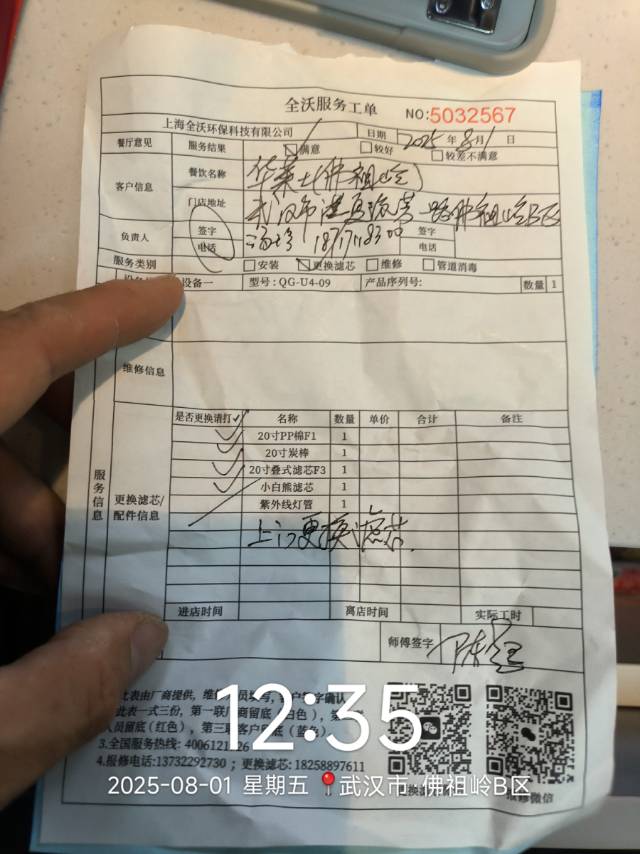 全沃服务工单 NO:5032567
上海全沃环保科技有限公司 日期 2025 年 8月 1 日
餐厅意见 服务结果 满意 较好 较差不满意
客户信息 餐饮名称 华莱士(佛祖岭)
门店地址 武汉市 佛祖岭B区
负责人 签字 签字
电话 电话
服务类别 安装 更换滤芯 维修 管道消毒
设备一 型号: QG-U4-09 产品序列号: 数量 1
维修信息
服务信息
更换滤芯/配件信息
是否更换请打✓ 名称 数量 单价 合计 备注
20寸PP棉F1 1
20寸炭棒 1
20寸叠式滤芯F3 1
小白熊滤芯 1
紫外线灯管 1
上门更换滤芯.
进店时间 离店时间 实际工时
师傅签字
此表由厂商提供,
此表一式三份,
人员留底(红色),
3.全国服务热线:
4.报修电话:13732292730 ; 更换滤芯: 18258897611
维修微信
12:35
2025-08-01 星期五 武汉市·佛祖岭B区